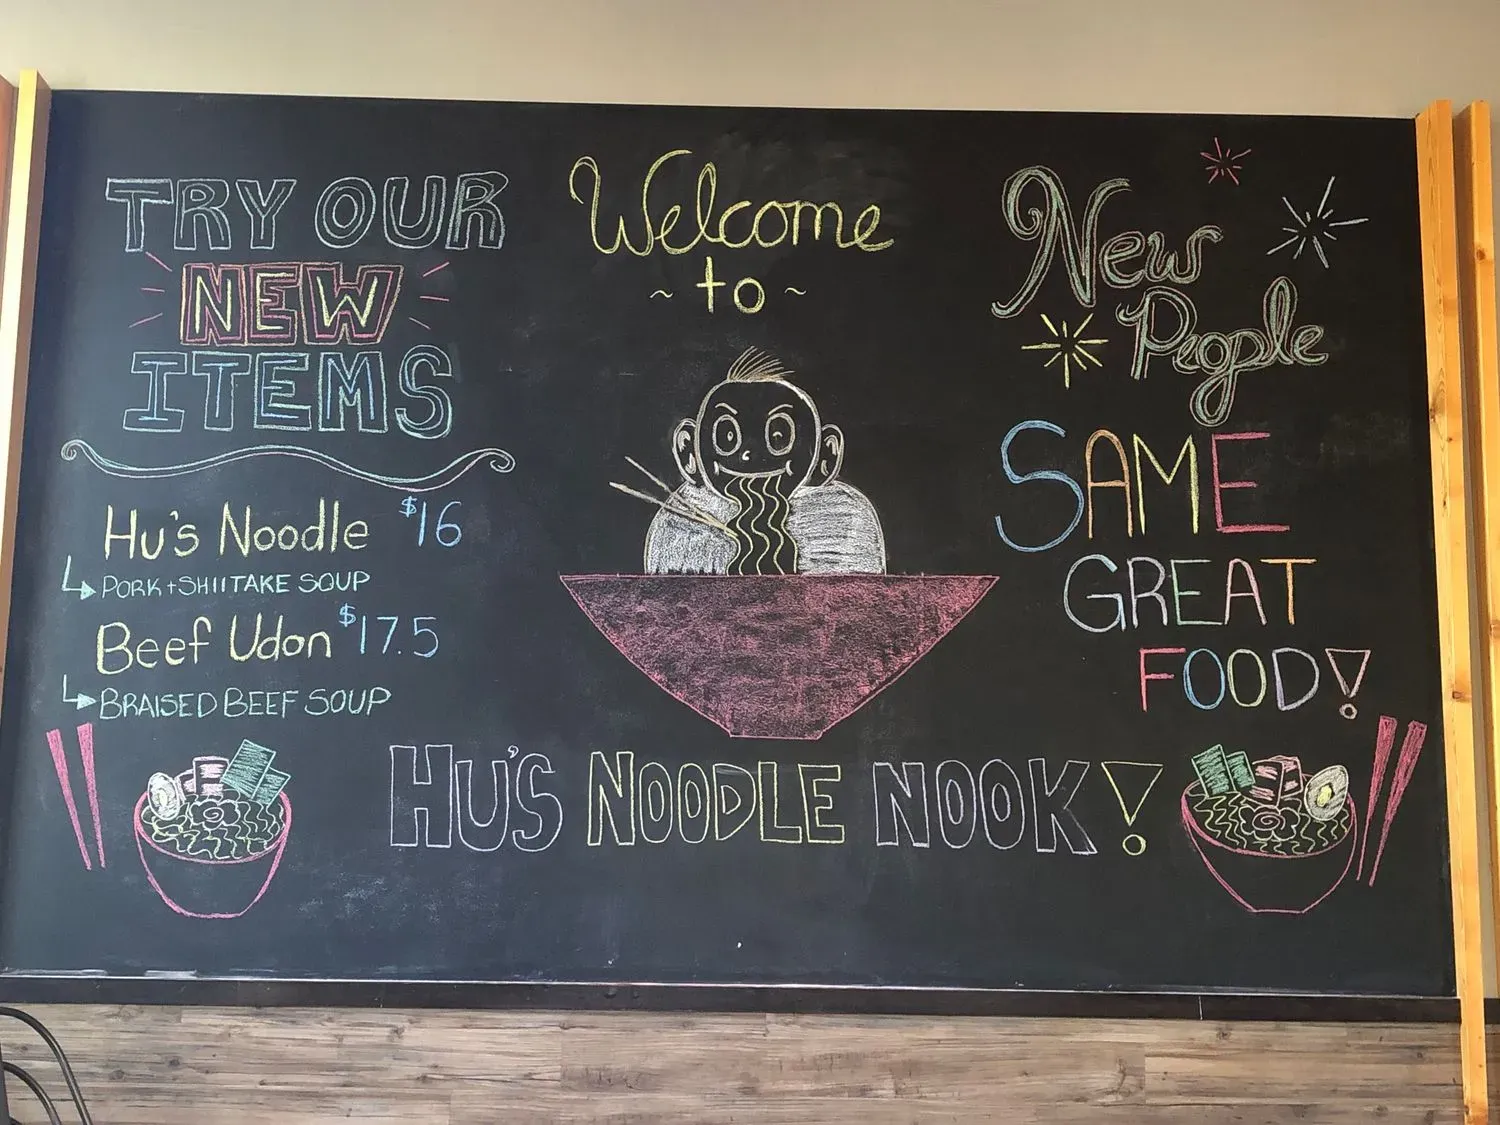 TRY OUR
NEW
ITEMS
Hu's Noodle $16
PORK + SHIITAKE SOUP
Beef Udon $17.5
BRAISED BEEF SOUP
Welcome
~ to ~
HU'S NOODLE NOOK!
New
People
SAME
GREAT
FOOD!